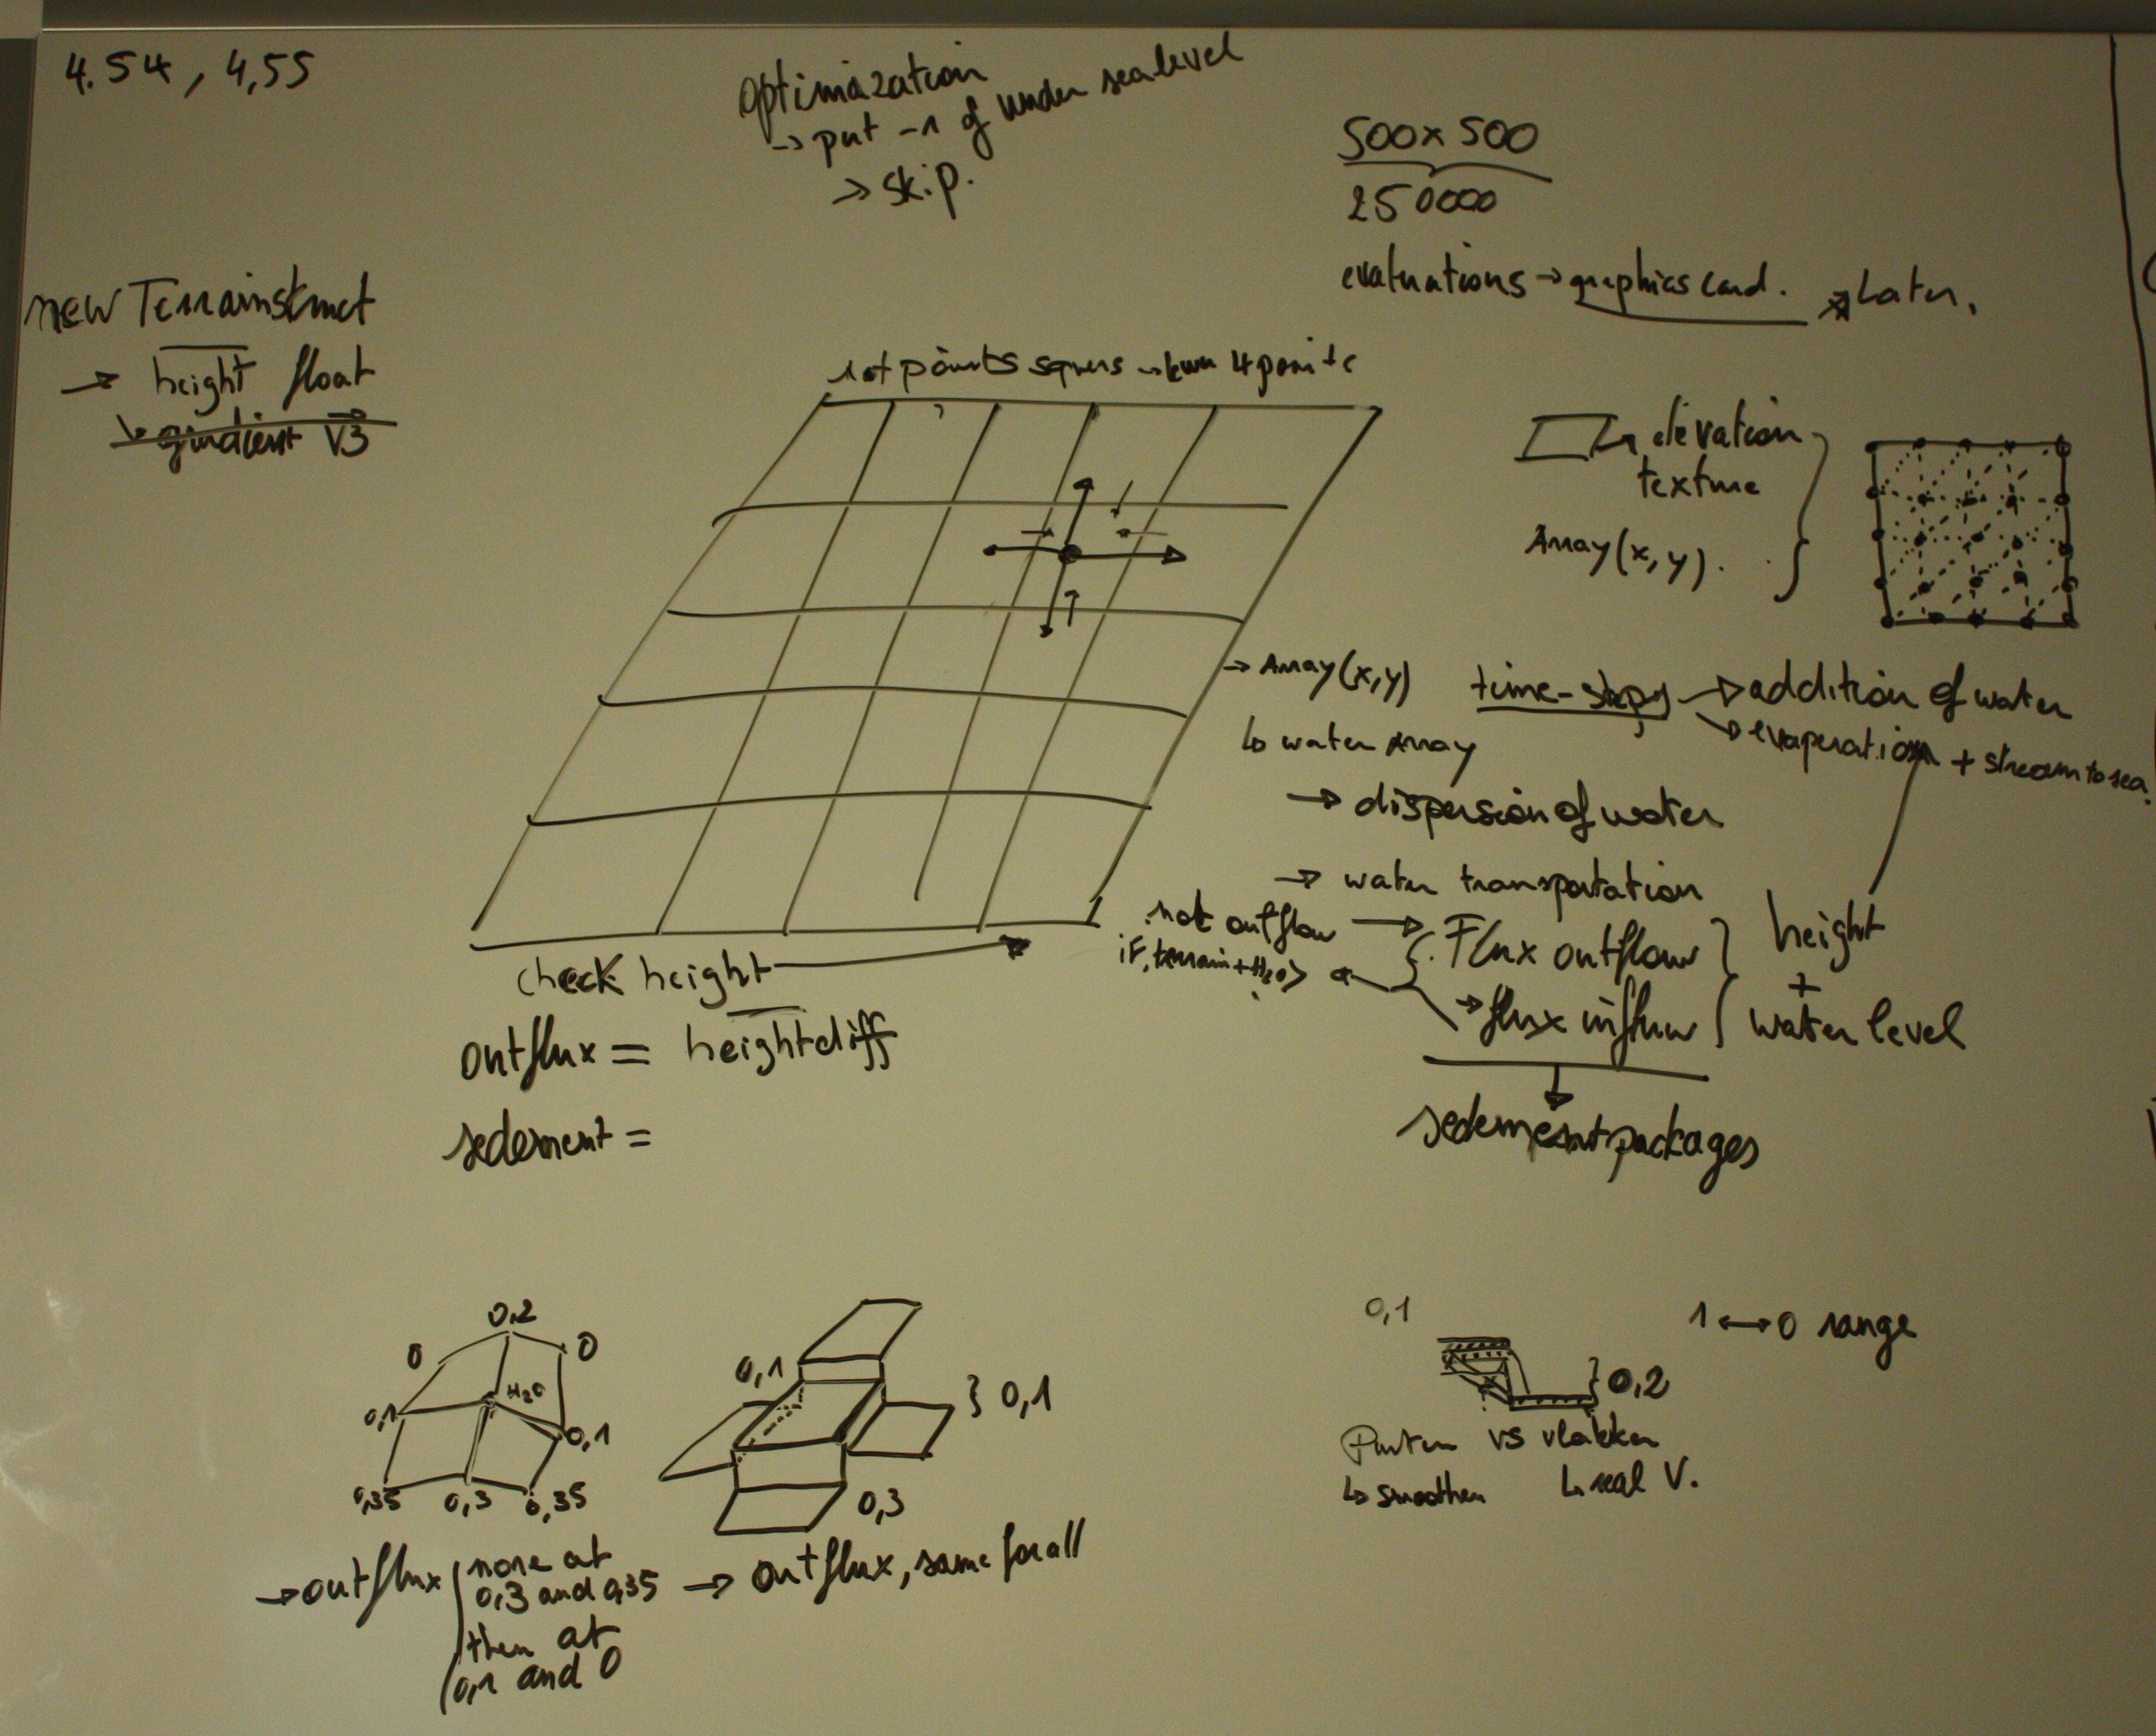 4.54, 4,55
optimazation
→ put -1 if under sealevel
→ skip.
500x500
250000
evaluations → graphics card. → Later.
new Terrainstruct
→ height float
↳ gradient V3
not points squers → 4 points
elevation
texture
Array(x,y).
→ Array(x,y)
↳ water Array
time-steps → addition of water
→ evaperation + stream to sea.
→ dispersion of water
→ water transportation
not outflow → Flux outflow
if, terrain+H2O>
→ flux influw
height
+
water level
sedementpackages
check height →
outflux = heightdiff
sedement =
0,2
0
0
H2O
0,1
0,1
0,35
0,3
0,35
→ outflux
none at
0,3 and 0,35
then at
0,1 and 0
0,1
} 0,1
0,3
→ outflux, same for all
0,1
1 ↔ 0 range
} 0,2
Punten vs vlakken
↳ smoothen
↳ real V.